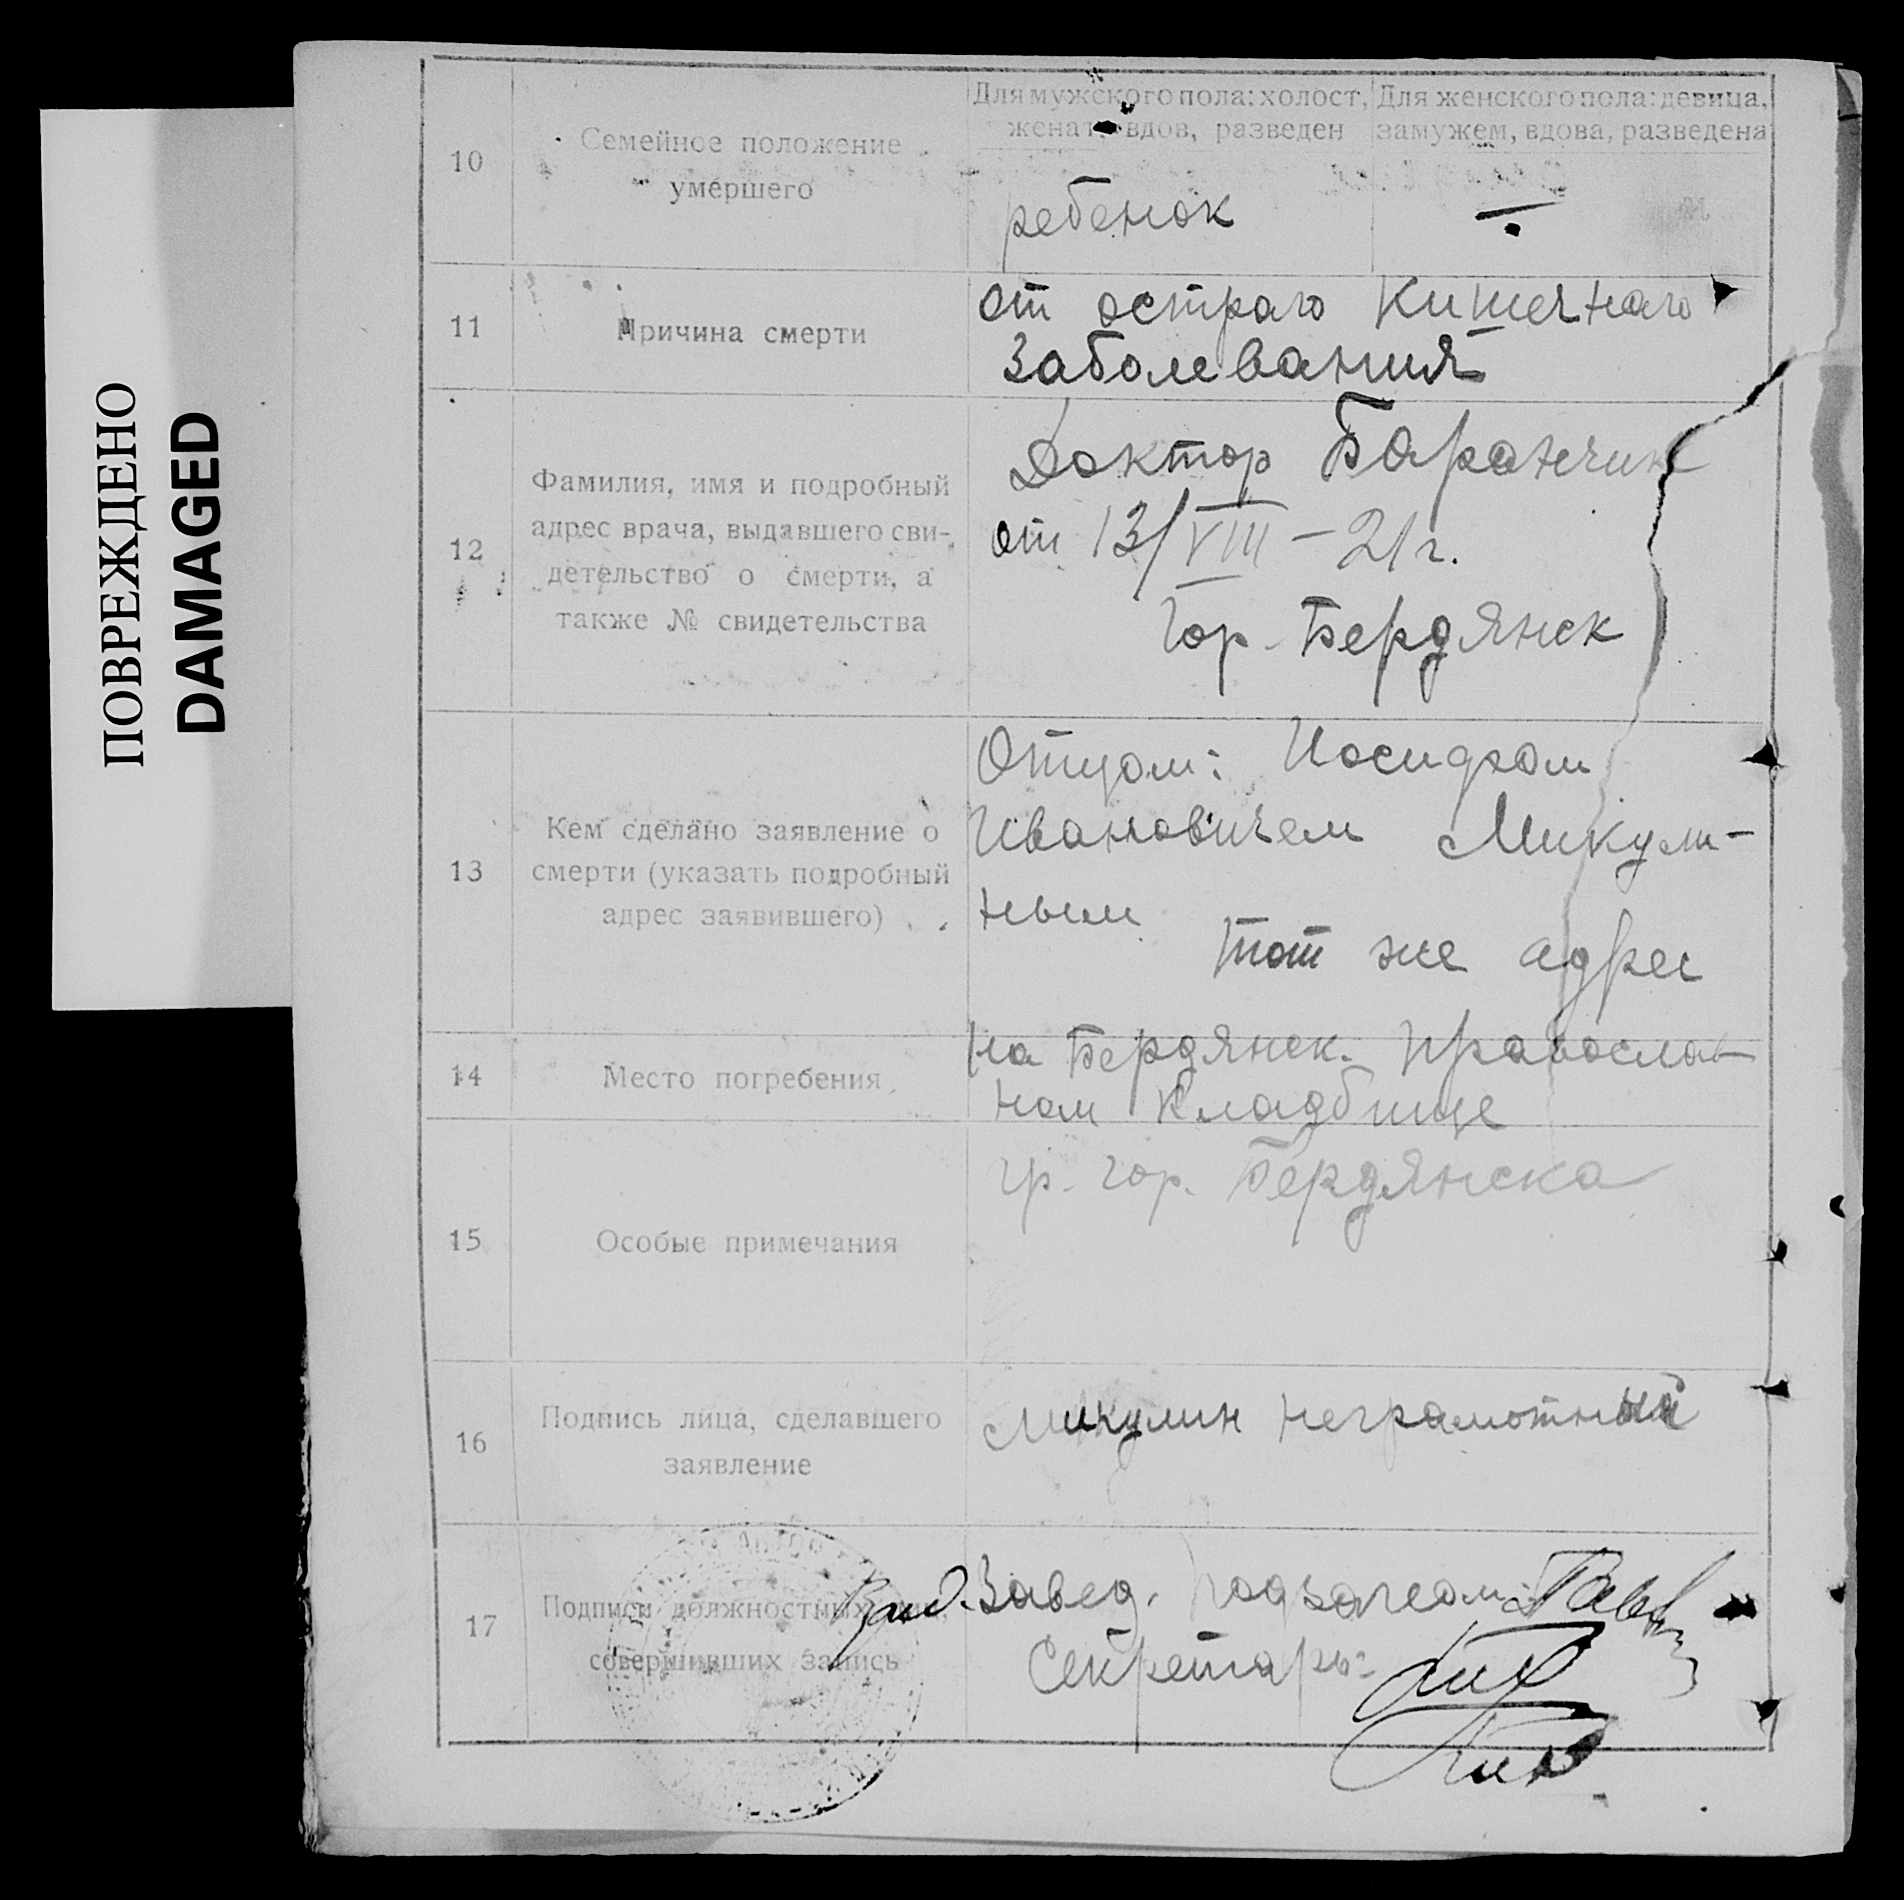 ПОВРЕЖДЕНО
DAMAGED
10
Семейное положение
умершего
Для мужского пола: холост,
женат, вдов, разведен
Для женского пола: девица,
замужем, вдова, разведена
ребенок
11
Причина смерти
от остраго Кишечнаго
Заболевания
12
Фамилия, имя и подробный
адрес врача, выдавшего сви-
детельство о смерти, а
также № свидетельства
Доктор Баранчик
от 13/VIII – 21 г.
Гор. Бердянск
13
Кем сделано заявление о
смерти (указать подробный
адрес заявившего)
Отцом: Иосифом
Ивановичем Микули-
ным
тот же адрес
14
Место погребения
На Бердянск. Православ-
ном Кладбище
15
Особые примечания
гр. гор. Бердянска
16
Подпись лица, сделавшего
заявление
Микулин неграмотный
17
Подписи должностных
совершивших запись
Завед. подзагсом:
Секретарь: